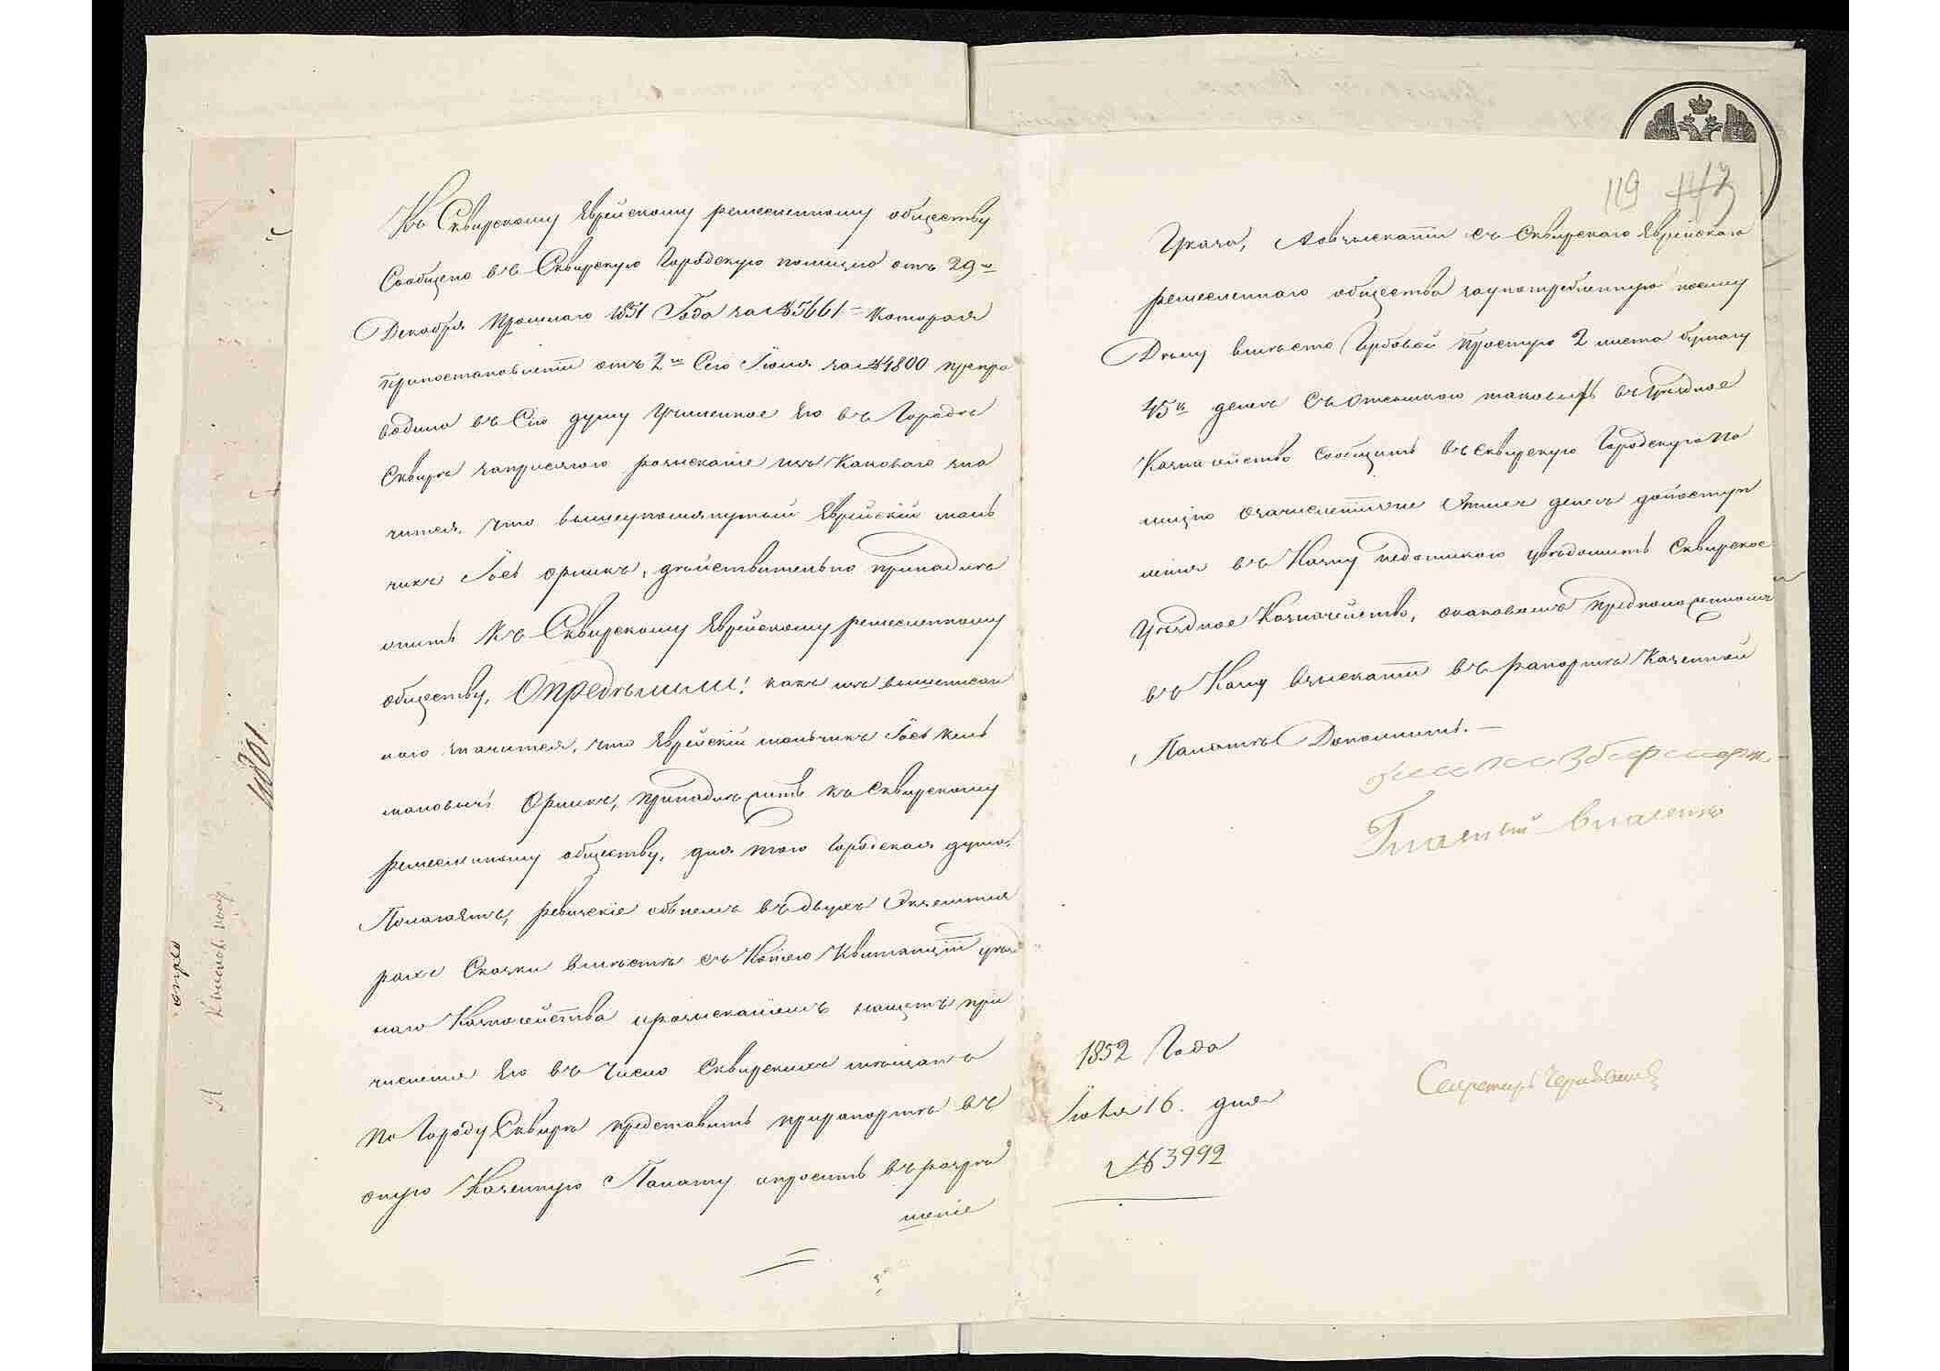 Къ Сквирскому Еврейскому ремесленному обществу
Сообщено въ Сквирскую Городскую полицію отъ 29го
Декабря прошлаго 1851 Года за №5661 = которая
отъ 2го Сего Іюля за №4800 препро
водила въ Сію думу учиненное Ею въ Городѣ
Сквирѣ розисканіе изъ Коловаго зна
чится, что вышеупомянутый Еврейскій маль
чикъ Іось Орликъ, дѣйствительно принадле
житъ Къ Сквирскому Еврейскому ремесленному
обществу, Опредѣлили: какъ изъ вышеписан
наго значится, что Еврейскій мальчикъ Іось Кель
мановичъ Орликъ, принадлежитъ къ Сквирскому
ремесленному обществу, для того Городская дума,
Полагаетъ, ревизскіе объ немъ въ двухъ Экземпля
рахъ Сказки вмѣстѣ съ Копіею Квитанціи уѣзд
наго Казначейства и розисканіемъ при
численія Его въ Число Сквирскихъ мѣщанъ
По Городу Сквирѣ представить при рапортѣ въ
оную Казенную Палату и просить въ разрѣ
шеніе
119 113
Указа, А о взысканіи съ Сквирскаго Еврейскаго
ремесленнаго общества за употребленную по сему
Дѣлу вмѣсто Гербовой простую 2 листа бумагу
45к денегъ съ отсылкою таковыхъ въ Уѣздное
Казначейство сообщить въ Сквирскую Городскую По
лицію о зачисленіи же Этихъ денегъ до поступ
ленія въ Казну недоимкою увѣдомить Сквирское
Уѣздное Казначейство, о каковомъ предположенномъ
въ Казну взысканіи въ рапортѣ Казенной
Палатѣ Дополнить. —
Гласный
1852 Года
Іюля 16. дня
№3992
Секретарь